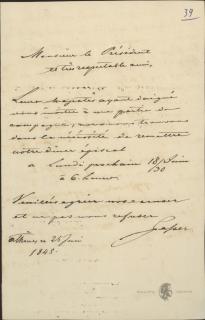 39
Monsieur le Président
et très respectable ami,
Leurs Majestés ayant daigné
nous inviter à une partie de
campagne, nous nous trouvons
dans la nécessité de remettre
notre dîner
à Lundi prochain 18/30 Juin
à 6 heures
Veuillez agréer nos
et ne pas nous refuser
Athènes, 25 Juin
1845